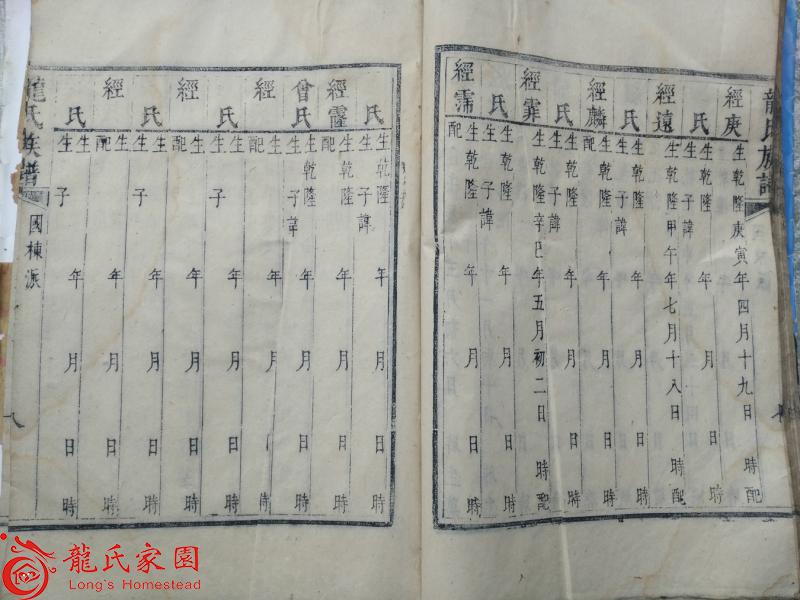 龍氏族譜
經庚
生乾隆庚寅年四月十九日時配
氏
生乾隆年月日時
生子諱
經遠
生乾隆甲午年七月十八日時配
氏
生乾隆年月日時
生子諱
經麟
生乾隆年月日時
配
氏
生乾隆年月日時
生子諱
經霏
生乾隆辛巳年五月初二日時配
氏
生乾隆年月日時
生子諱
經霈
生乾隆年月日時
配
氏
生乾隆年月日時
生子諱
經
生乾隆年月日時
配
曾氏
生乾隆年月日時
生子諱
經
生年月日時
配
氏
生年月日時
生子
經
生年月日時
配
氏
生年月日時
生子
經
生年月日時
配
氏
生年月日時
生子
龍氏族譜
國棟派
八
龍氏家園
Long's Homestead